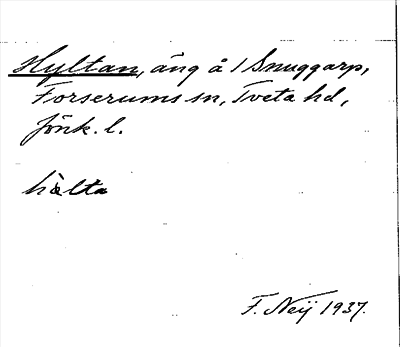 Hyltan, äng å 1 Snuggarp,
Forserums sn, Tveta hd,
Jönk. l.
hìlta
F. Neij 1937.